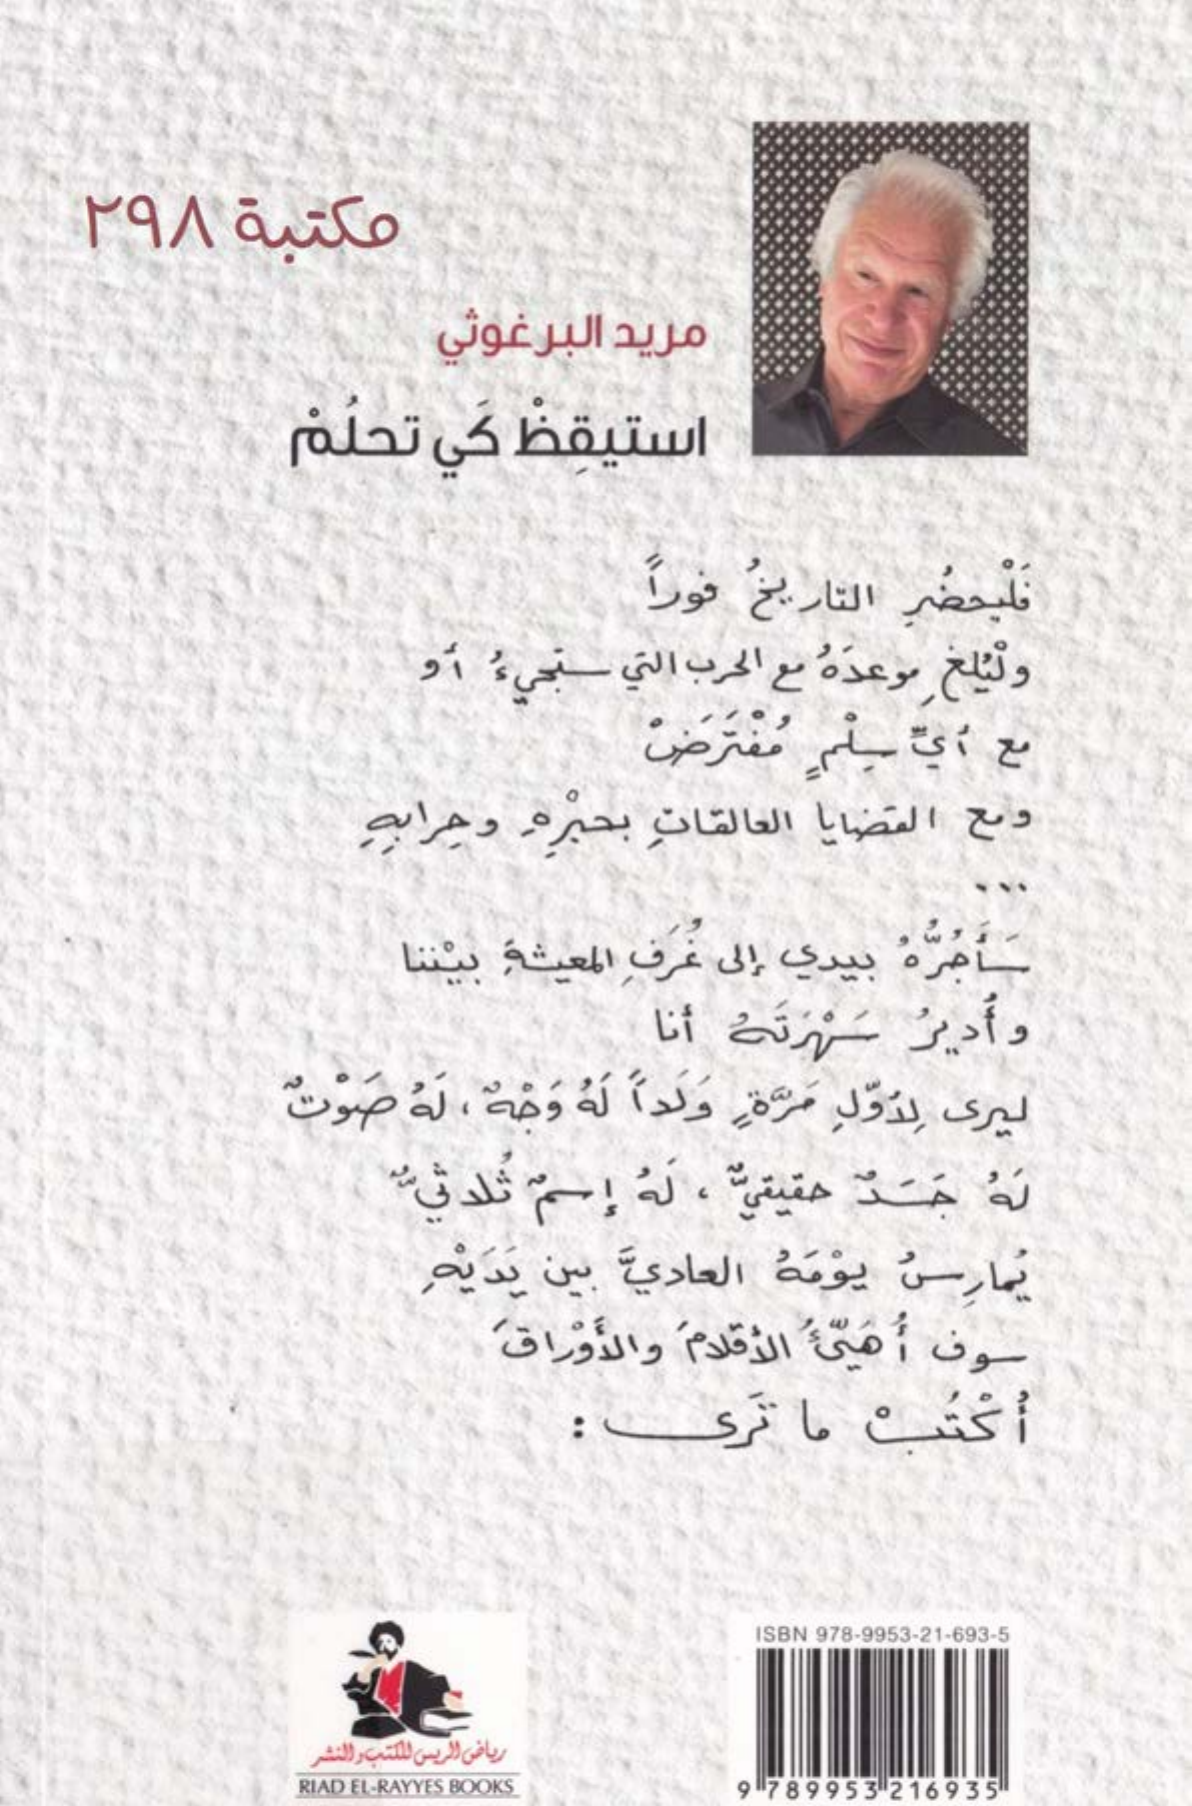 مكتبة ٢٩٨
مريد البرغوثي
استيقِظْ كَي تحلُمْ
فَلْيحضُرِ التاريخُ فوراً
ولْيُلغِ موعدَهُ مع الحرب التي ستجيءُ أو
مع أيِّ سِلْمٍ مُفْتَرَضْ
ومع القضايا العالقاتِ بحبْرِهِ وحِرابِهِ
...
سَأَجُرُّهُ بيدي إلى غُرَفِ المعيشةِ بيْننا
وأُديرُ سَهْرَتَهُ أنا
ليرى لِأوّلِ مَرَّةٍ وَلَداً لَهُ وَجْهٌ، لَهُ صَوْتٌ
لَهُ جَسَدٌ حقيقيٌّ، لَهُ إسمٌ ثُلاثيٌّ
يُمارِسُ يوْمَهُ العاديَّ بين يَدَيْهِ
سوف أُهَيّئُ الأقلامَ والأَوْراقَ
أُكْتُبْ ما تَرى:
ISBN 978-9953-21-693-5
9 789953 216935
رياض الريس للكتب والنشر
RIAD EL-RAYYES BOOKS